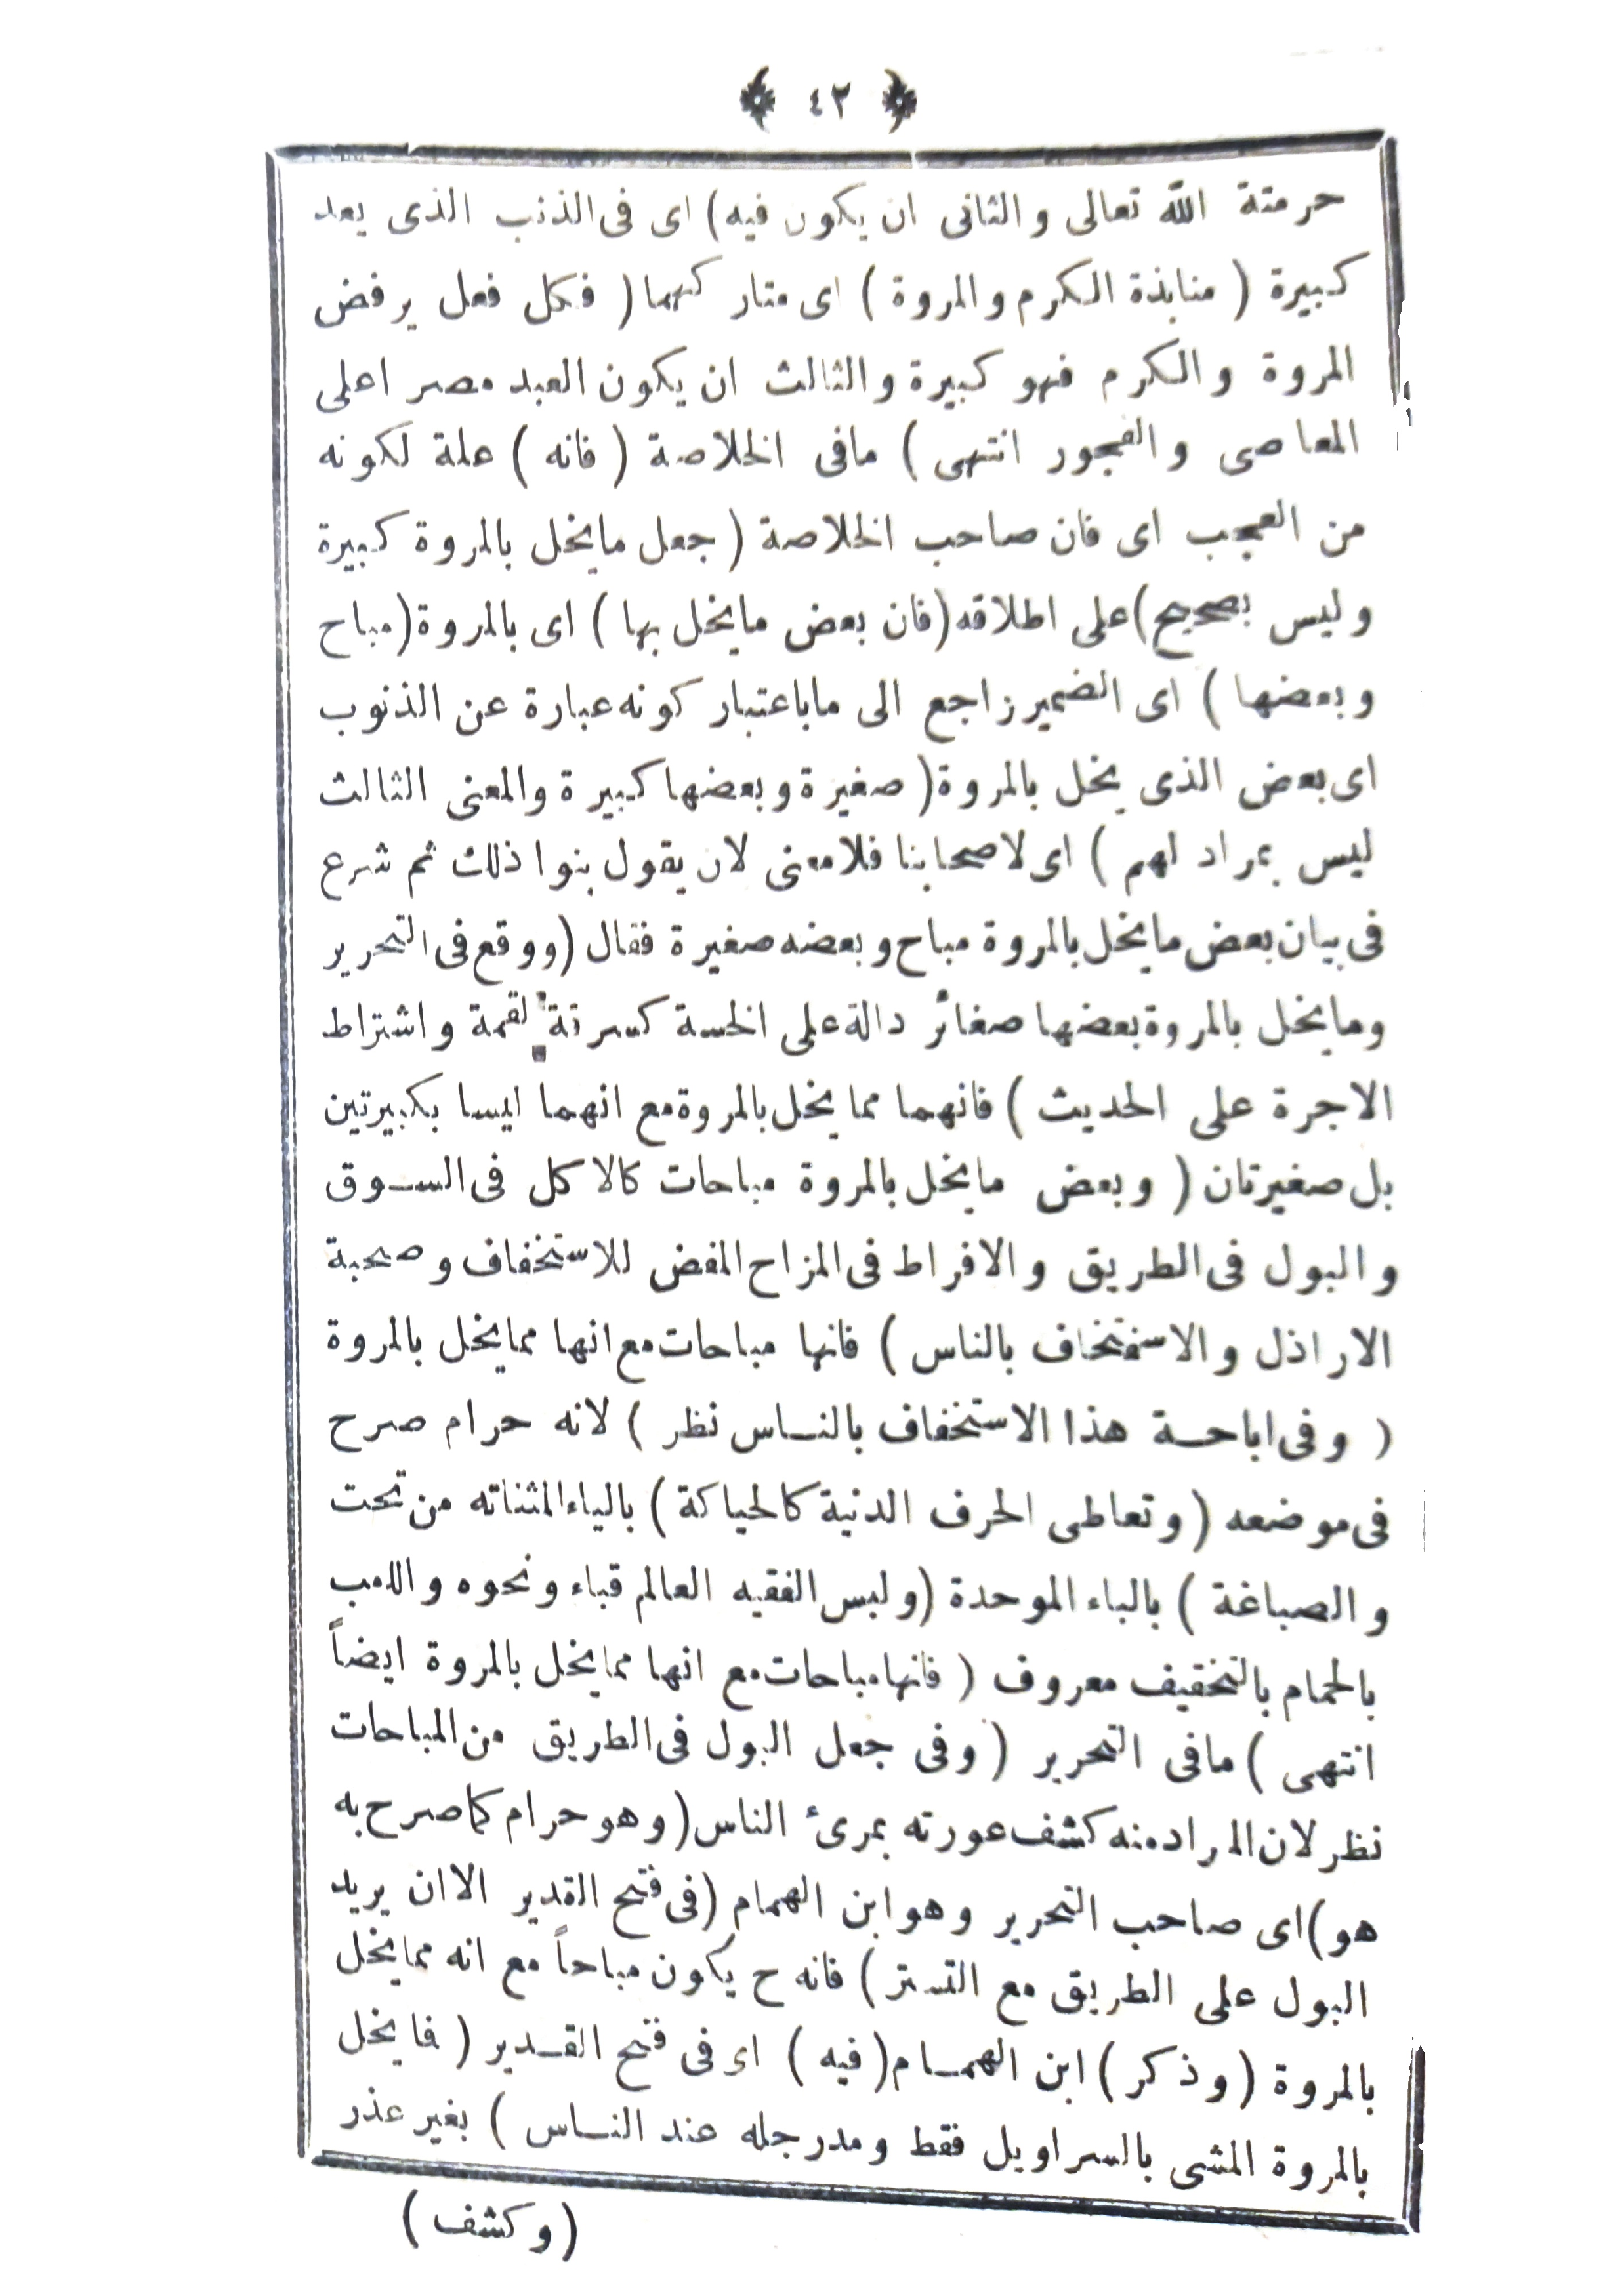 ﴿ ٤٢ ﴾
حرمتة الله تعالى والثانى ان يكون فيه) اى فى الذنب الذى يعد
كبيرة ( منابذة الكرم والمروة ) اى متاركهما ( فكل فعل يرفض
المروة والكرم فهو كبيرة والثالث ان يكون العبد مصرا على
المعاصى والفجور انتهى ) مافى الخلاصة ( فانه ) علة لكونه
من العجب اى فان صاحب الخلاصة ( جعل مايخل بالمروة كبيرة
وليس بصحيح) على اطلاقه (فان بعض مايخل بها ) اى بالمروة (مباح
وبعضها ) اى الضمير راجع الى ماباعتبار كونه عبارة عن الذنوب
اى بعض الذى يخل بالمروة ( صغيرة وبعضها كبيرة والمعنى الثالث
ليس بمراد لهم ) اى لاصحابنا فلامعنى لان يقول بنوا ذلك ثم شرع
فى بيان بعض مايخل بالمروة مباح وبعضه صغيرة فقال (ووقع فى التحرير
ومايخل بالمروة بعضها صغائر دالة على الخسة كسرقة لقمة واشتراط
الاجرة على الحديث ) فانهما مما يخل بالمروة مع انهما ليسا بكبيرتين
بل صغيرتان ( وبعض مايخل بالمروة مباحات كالاكل فى السوق
والبول فى الطريق والافراط فى المزاح المفض للاستخفاف وصحبة
الاراذل والاستخفاف بالناس ) فانها مباحات مع انها ممايخل بالمروة
( وفى اباحة هذا الاستخفاف بالناس نظر ) لانه حرام صرح
فى موضعه ( وتعاطى الحرف الدنية كالحياكة ) بالياء المثناته من تحت
والصباغة ) بالباء الموحدة (ولبس الفقيه العالم قباء ونحوه واللعب
بالحمام بالتخفيف معروف ( فانها مباحات مع انها ممايخل بالمروة ايضاً
انتهى ) مافى التحرير ( وفى جعل البول فى الطريق من المباحات
نظر لان المراد منه كشف عورته بمرئ الناس (وهو حرام كماصرح به
هو) اى صاحب التحرير وهو ابن الهمام (فى فتح القدير الاان يريد
البول على الطريق مع التستر ) فانه ح يكون مباحاً مع انه ممايخل
بالمروة ( وذكر ) ابن الهمام ( فيه ) اى فى فتح القدير ( فايخل
بالمروة المشى بالسراويل فقط ومدرجله عند الناس ) بغير عذر
( وكشف )